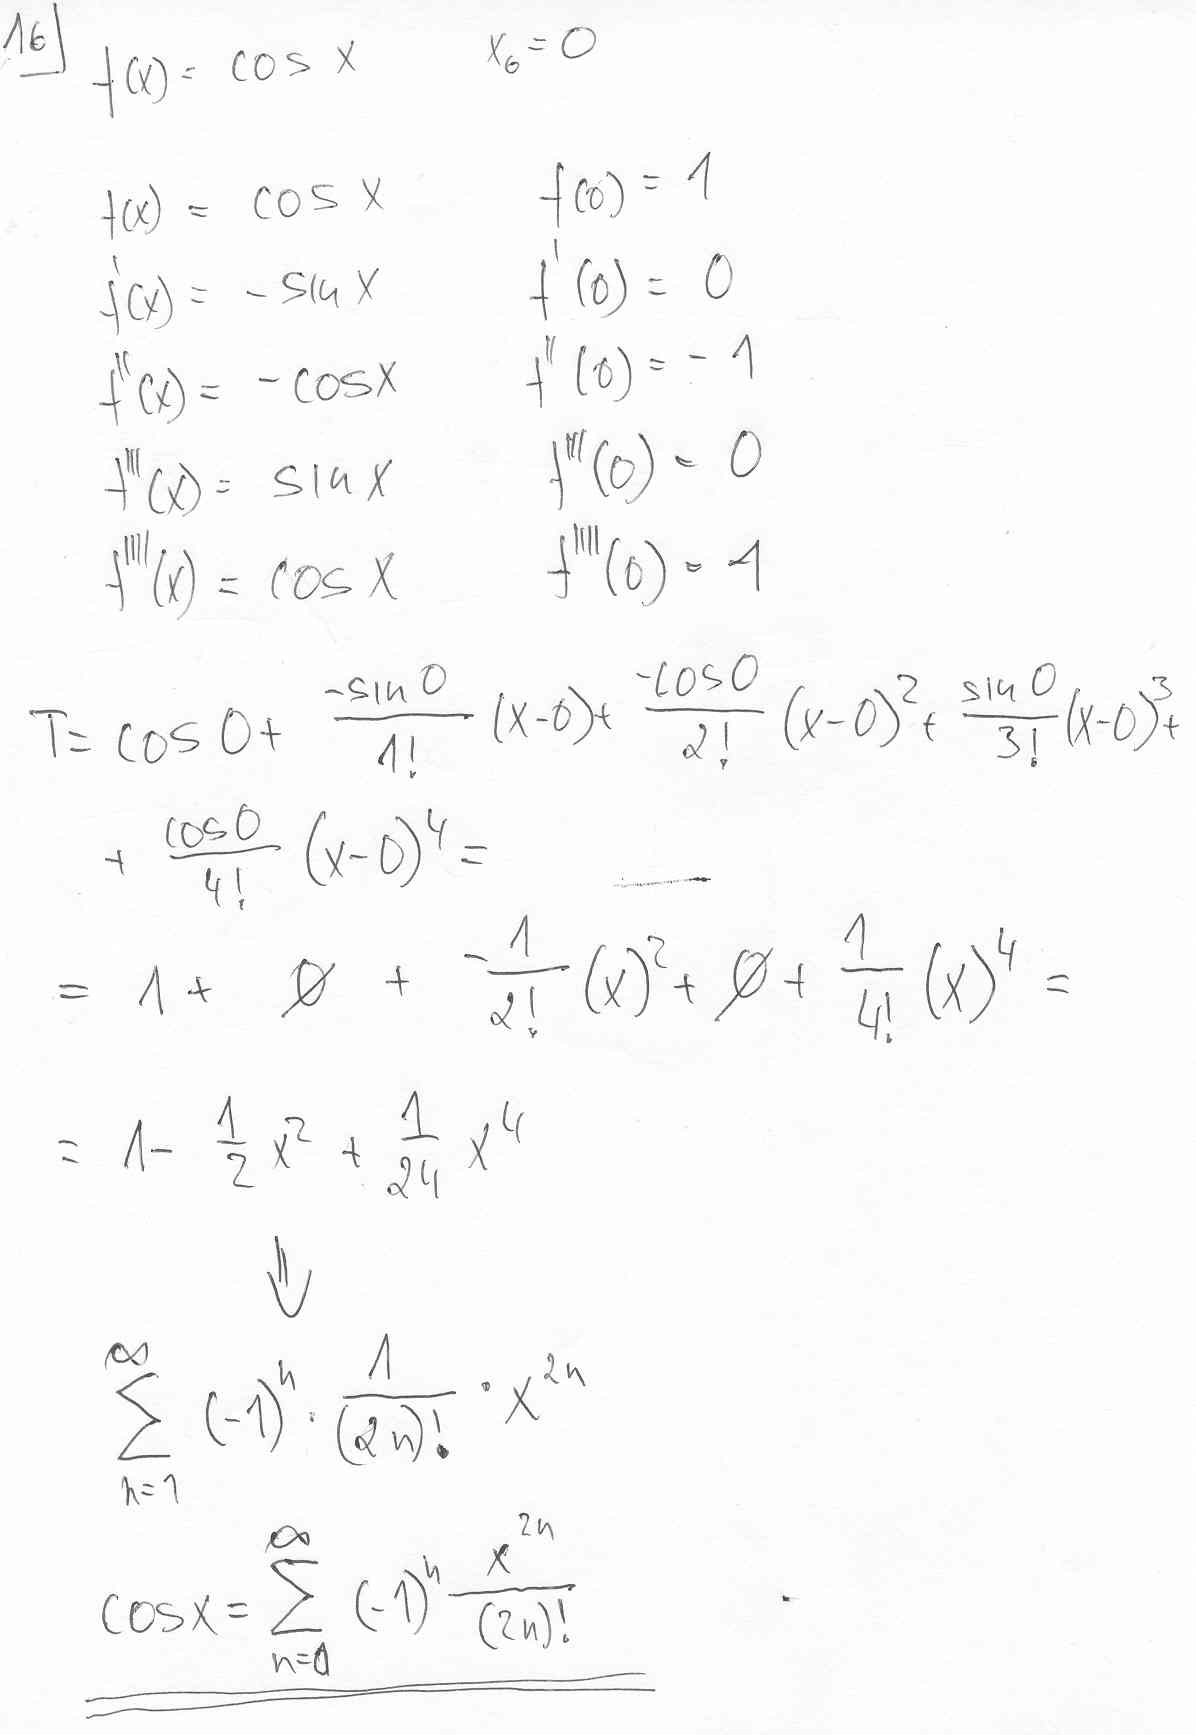 16
f(x) = cos x x₀ = 0
f(x) = cos x f(0) = 1
f'(x) = - sin x f'(0) = 0
f''(x) = - cos x f''(0) = - 1
f'''(x) = sin x f'''(0) = 0
f''''(x) = cos x f''''(0) = 1
T = cos 0 + -sin 0 / 1! (x-0) + -cos 0 / 2! (x-0)² + sin 0 / 3! (x-0)³ +
+ cos 0 / 4! (x-0)⁴ =
= 1 + 0 + -1 / 2! (x)² + 0 + 1 / 4! (x)⁴ =
= 1 - 1/2 x² + 1/24 x⁴
⇓
∑_{n=1}^{∞} (-1)ⁿ · 1 / (2n)! · x²ⁿ
cos x = ∑_{n=0}^{∞} (-1)ⁿ x²ⁿ / (2n)!